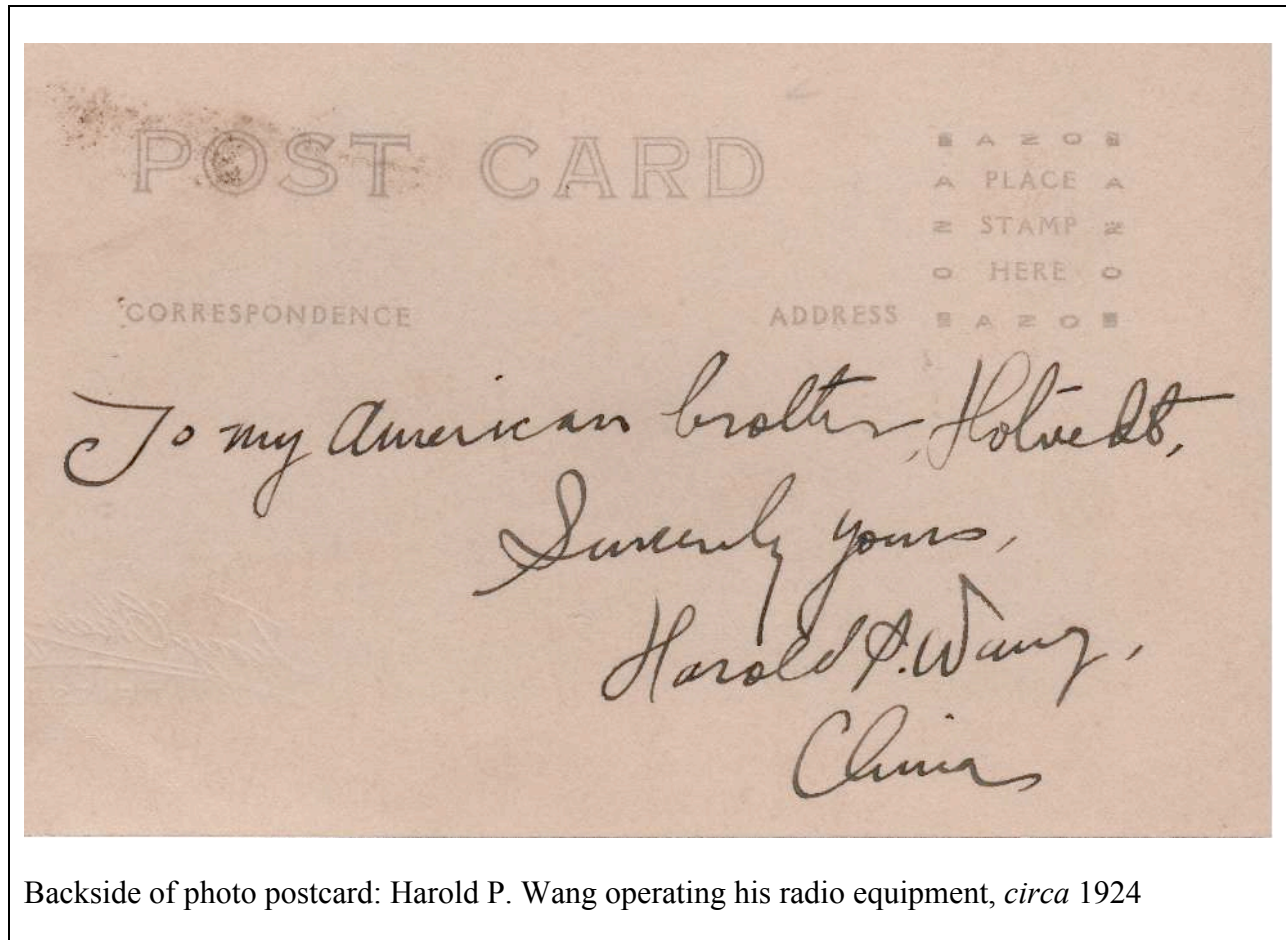 POST CARD
AZO
A PLACE A
Z STAMP Z
O HERE O
CORRESPONDENCE ADDRESS AZO
To my American brother, Holvedt,
Sincerely yours,
Harold P. Wang,
China
Backside of photo postcard: Harold P. Wang operating his radio equipment, circa 1924